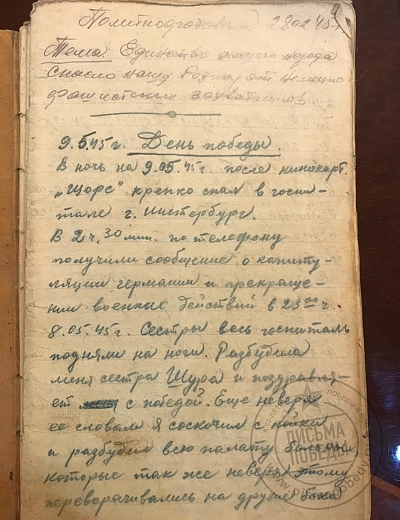 Политподготовка 28.02.45г.
Тема: Единство нашего народа
спасло нашу Родину от немецко
фашистских захватчиков
9.5.45 г. День победы.
В ночь на 9.05.45 г. после кинокарт.
„Щорс" крепко спал в госпи-
тале г. Инстербург.
В 2 ч. 30 мин. по телефону
получили сообщение о капиту-
ляции германии и прекраще-
нии военных действий в 23 00 ч.
8.05.45 г. Сестры весь госпиталь
подняли на ноги. Разбудила
меня сестра Шура и поздравля-
ет с победой. Еще неверя
ее словам я соскочил с койки
и разбудил всю палату больных
которые так же неверя этому
переворачивались на другие бока
ПИСЬМА
ПОБЕДЫ